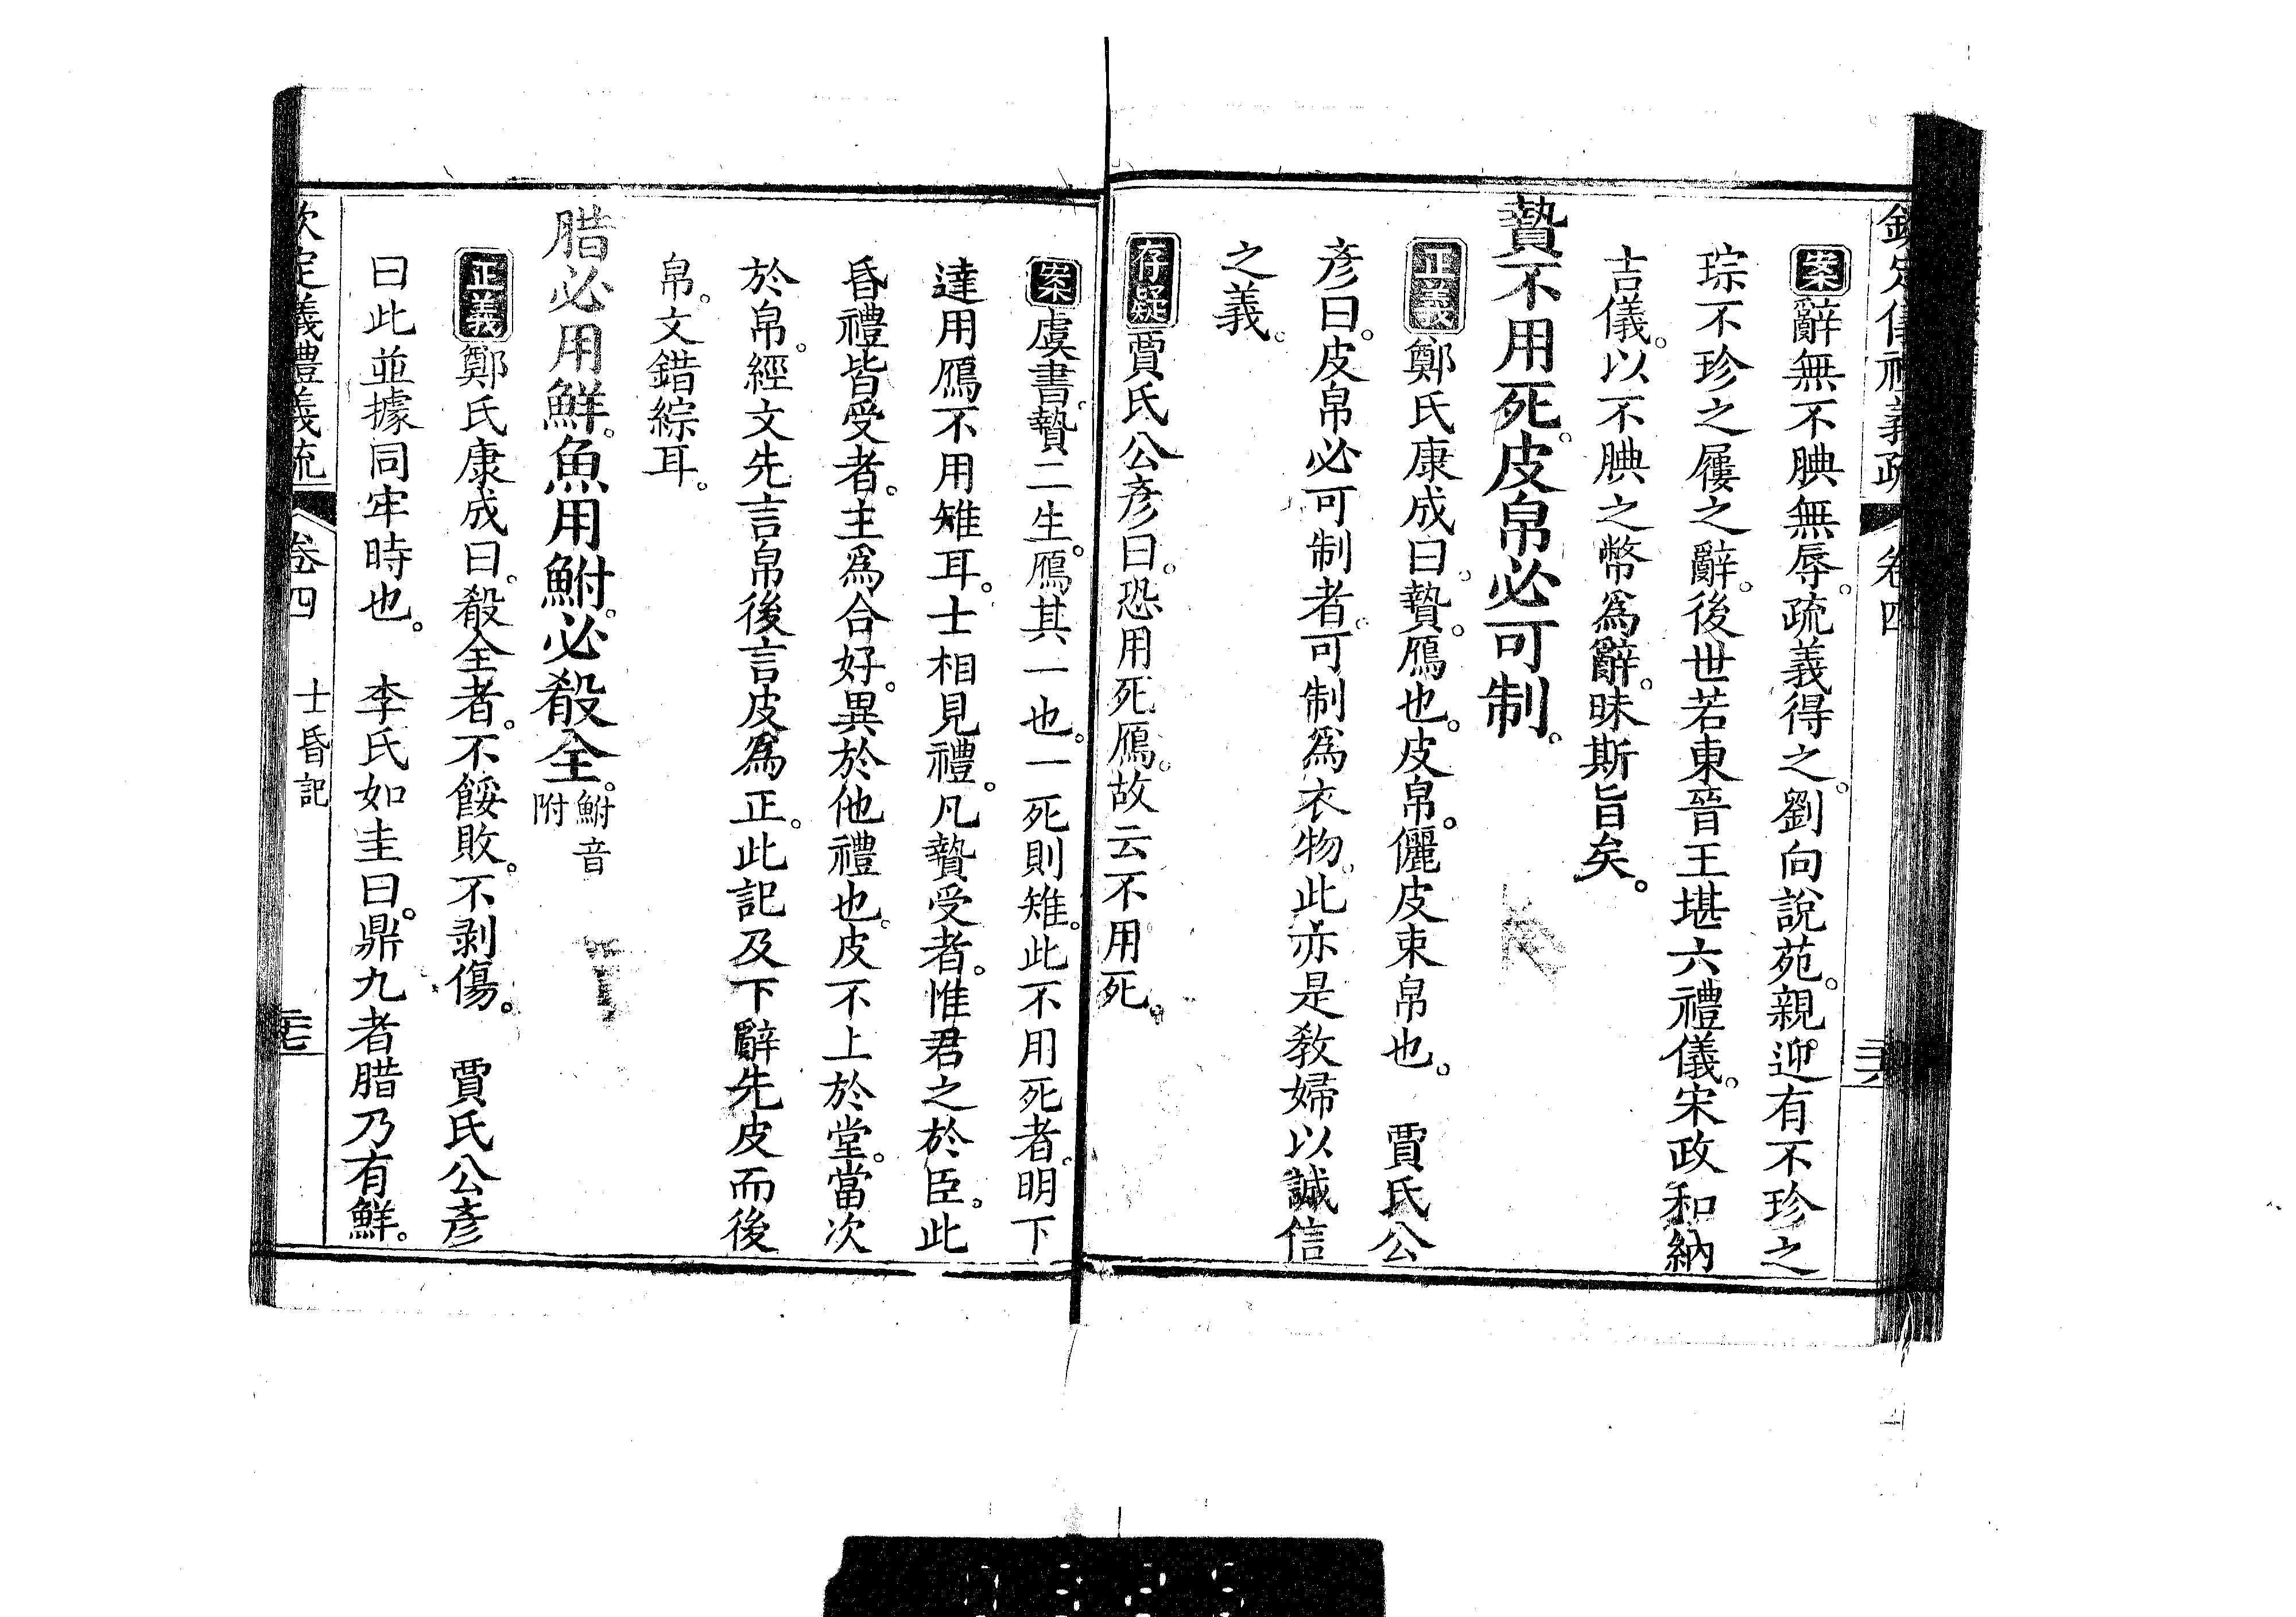 欽定儀禮義疏 卷四 三六
案辭無不腆無辱。疏義得之。劉向說苑。親迎有不珍之
琮不珍之屨之辭。後世若東晉王堪六禮儀。宋政和納
吉儀。以不腆之幣爲辭。昧斯旨矣。
贄不用死。皮帛必可制。
正義鄭氏康成曰。贄。鴈也。皮帛。儷皮束帛也。 賈氏公
彥曰。皮帛必可制者。可制爲衣物。此亦是敎婦以誠信
之義。
存疑賈氏公彥曰。恐用死鴈。故云不用死。
案虞書。贄二生。鴈其一也。一死則雉。此不用死者。明下
達用鴈不用雉耳。士相見禮。凡贄受者。惟君之於臣。此
昏禮皆受者。主爲合好。異於他禮也。皮不上於堂。當次
於帛。經文先言帛後言皮爲正。此記及下辭先皮而後
帛。文錯綜耳。
腊必用鮮。魚用鮒。必殽全。鮒音附
正義鄭氏康成曰。殽全者。不餒敗。不剥傷。 賈氏公彥
曰此並據同牢時也。 李氏如圭曰。鼎九者腊乃有鮮。
欽定儀禮義疏 卷四 士昏記 三七